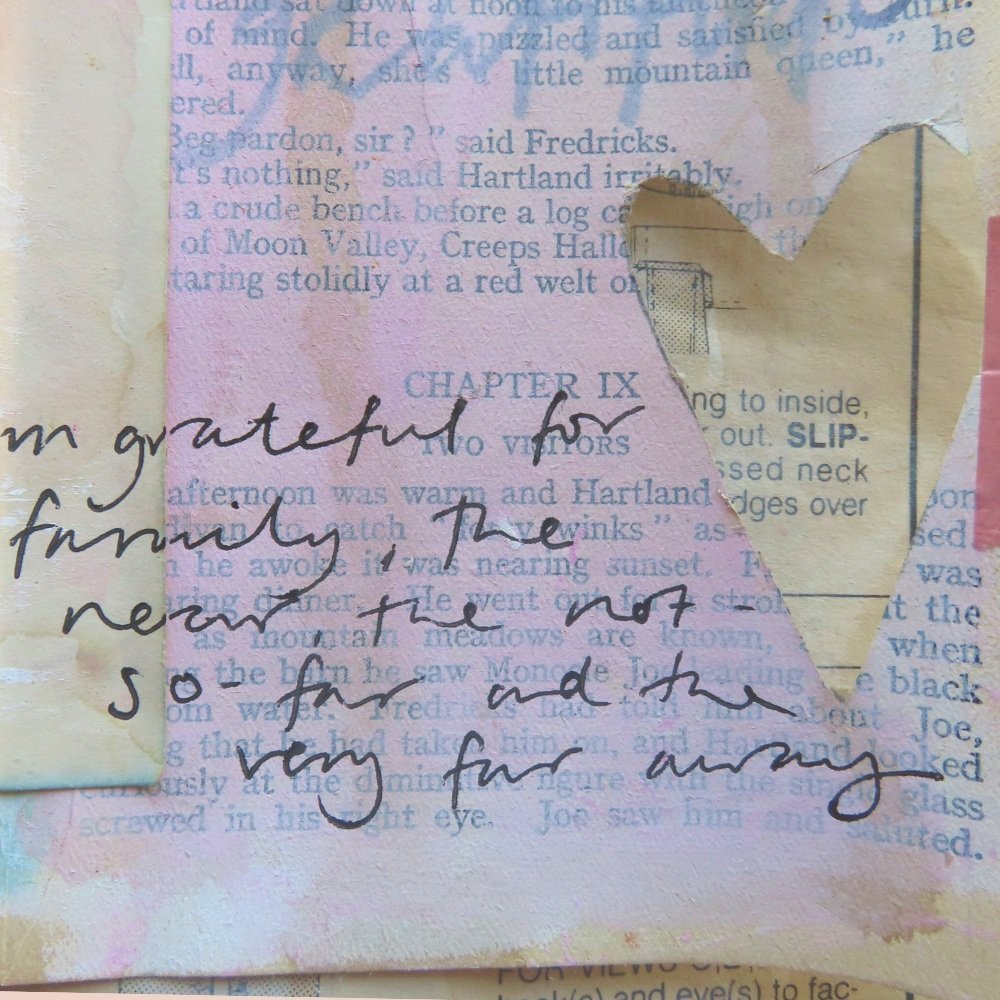 rtland sat down at noon to his
of mind. He was puzzled and satisfied by turn.
ll, anyway, she's a little mountain queen," he
ered.
Beg pardon, sir? " said Fredricks.
t's nothing," said Hartland irritably.
a crude bench before a log ca igh on
of Moon Valley, Creeps Hallo th
taring stolidly at a red welt on
CHAPTER IX
TWO VISITORS
m grateful for
family, the
near, the not-
so-far and the
very far away
ng to inside,
out. SLIP-
ssed neck
dges over
afternoon was warm and Hartland oon
divan to catch forty winks " as sed
he awoke it was nearing sunset. F was
ring dinner. He went out for a strol t the
as mountain meadows are known, when
ng the barn he saw Monocle Joe leading e black
om water. Fredricks had told him about Joe,
g that he had taken him on, and Hartland looked
curiously at the diminutive figure with the single glass
screwed in his right eye. Joe saw him and saluted.
FOR VIEWS
hook(s) and eye(s) to fac-